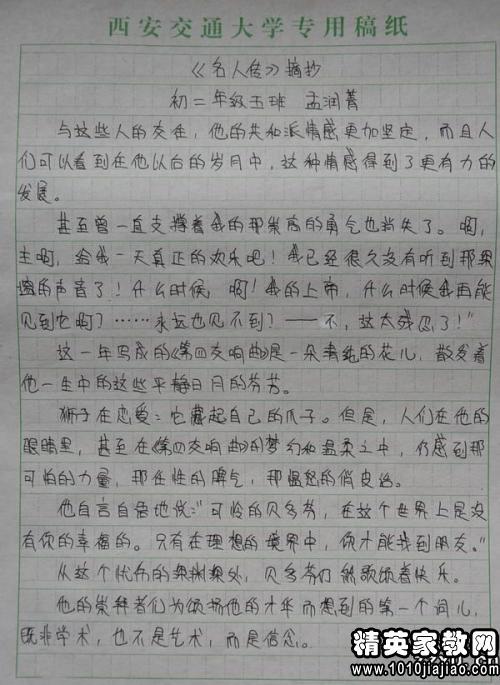 西安交通大学专用稿纸
《名人传》摘抄
初二年级五班 孟润菁
与这些人的交往,他的共和派情感更加坚定,而且人
们可以看到在他以后的岁月中,这种情感得到了更有力的
发展。
甚至曾一直支撑着我的那崇高的勇气也消失了。啊,
主啊,给我一天真正的欢乐吧!我已经很久没有听到那深
邃的声音了!什么时候,啊!我的上帝,什么时候我再能
见到它啊?……永远也见不到?——不,这太残忍了!”
这一年写成的《第四交响曲》是一朵清纯的花儿,散发着
他一生中的这些平静日月的芬芳。
狮子在恋爱:它藏起自己的爪子。但是,人们在他的
眼睛里,甚至在《第四交响曲》的梦幻和温柔之中,仍感到那
可怕的力量,那任性的脾气,那愠怒的俏皮话。
他自言自语地说:“可怜的贝多芬,在这个世界上是没
有你的幸福的。只有在理想的境界中,你才能找到朋友。”
从这个忧伤的深渊深处,贝多芬们 歌颂着快乐。
他的崇拜者们为颂扬他的才华而想到的第一个词儿,
既非学术,也不是艺术,而是信念。
精英家教网
www.1010jiajiao.com